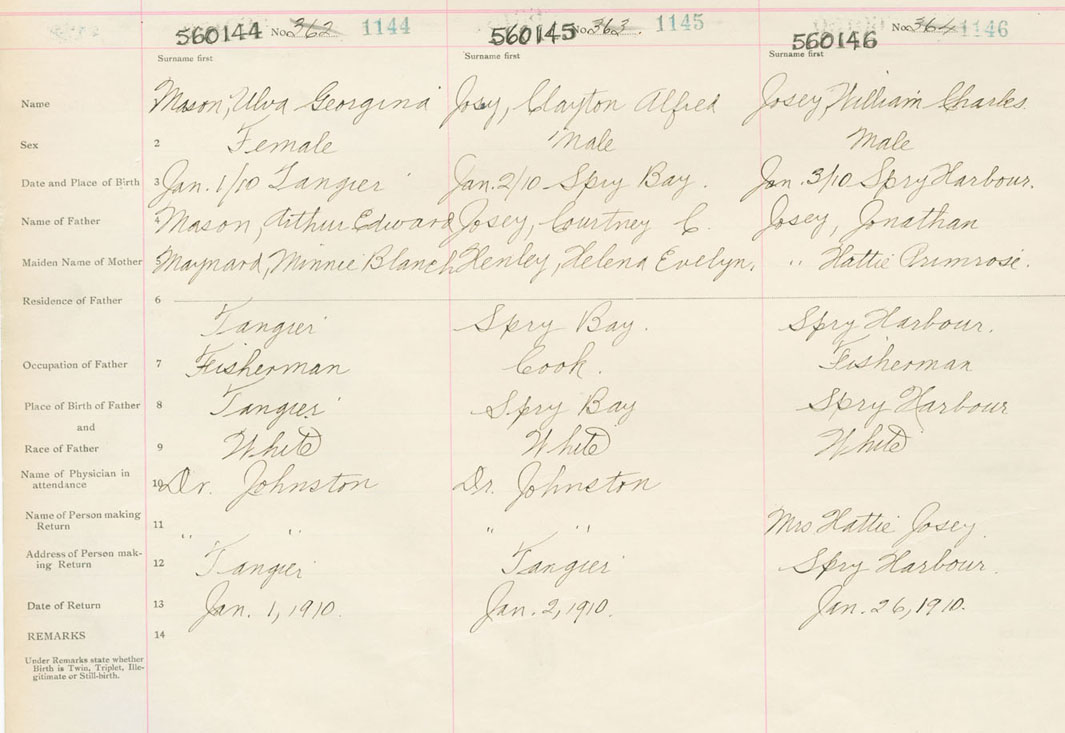 560144 No. 362 1144 560145 No. 363. 1145 560146 No. 364 1146
Surname first Surname first Surname first
Name Mason, Ulva Georgina Josey, Clayton Alfred Josey, William Charles
Sex 2 Female Male Male
Date and Place of Birth 3 Jan. 1/10 Tangier Jan. 2/10 Spry Bay. Jan. 3/10 Spry Harbour.
Name of Father 4 Mason, Arthur Edward Josey, Courtney C. Josey, Jonathan
Maiden Name of Mother 5 Maynard, Minnie Blanch Henley, Helena Evelyn, " Hattie Primrose.
Residence of Father 6
Tangier Spry Bay. Spry Harbour.
Occupation of Father 7 Fisherman Cook. Fisherman
Place of Birth of Father 8 Tangier Spry Bay Spry Harbour
and
Race of Father 9 White White White
Name of Physician in
attendance 10 Dr. Johnston Dr. Johnston
Name of Person making
Return 11 " " " " Mrs Hattie Josey.
Address of Person mak-
ing Return 12 Tangier Tangier Spry Harbour.
Date of Return 13 Jan. 1, 1910. Jan. 2, 1910. Jan. 26, 1910.
REMARKS 14
Under Remarks state whether
Birth is Twin, Triplet, Ille-
gitimate or Still-birth.